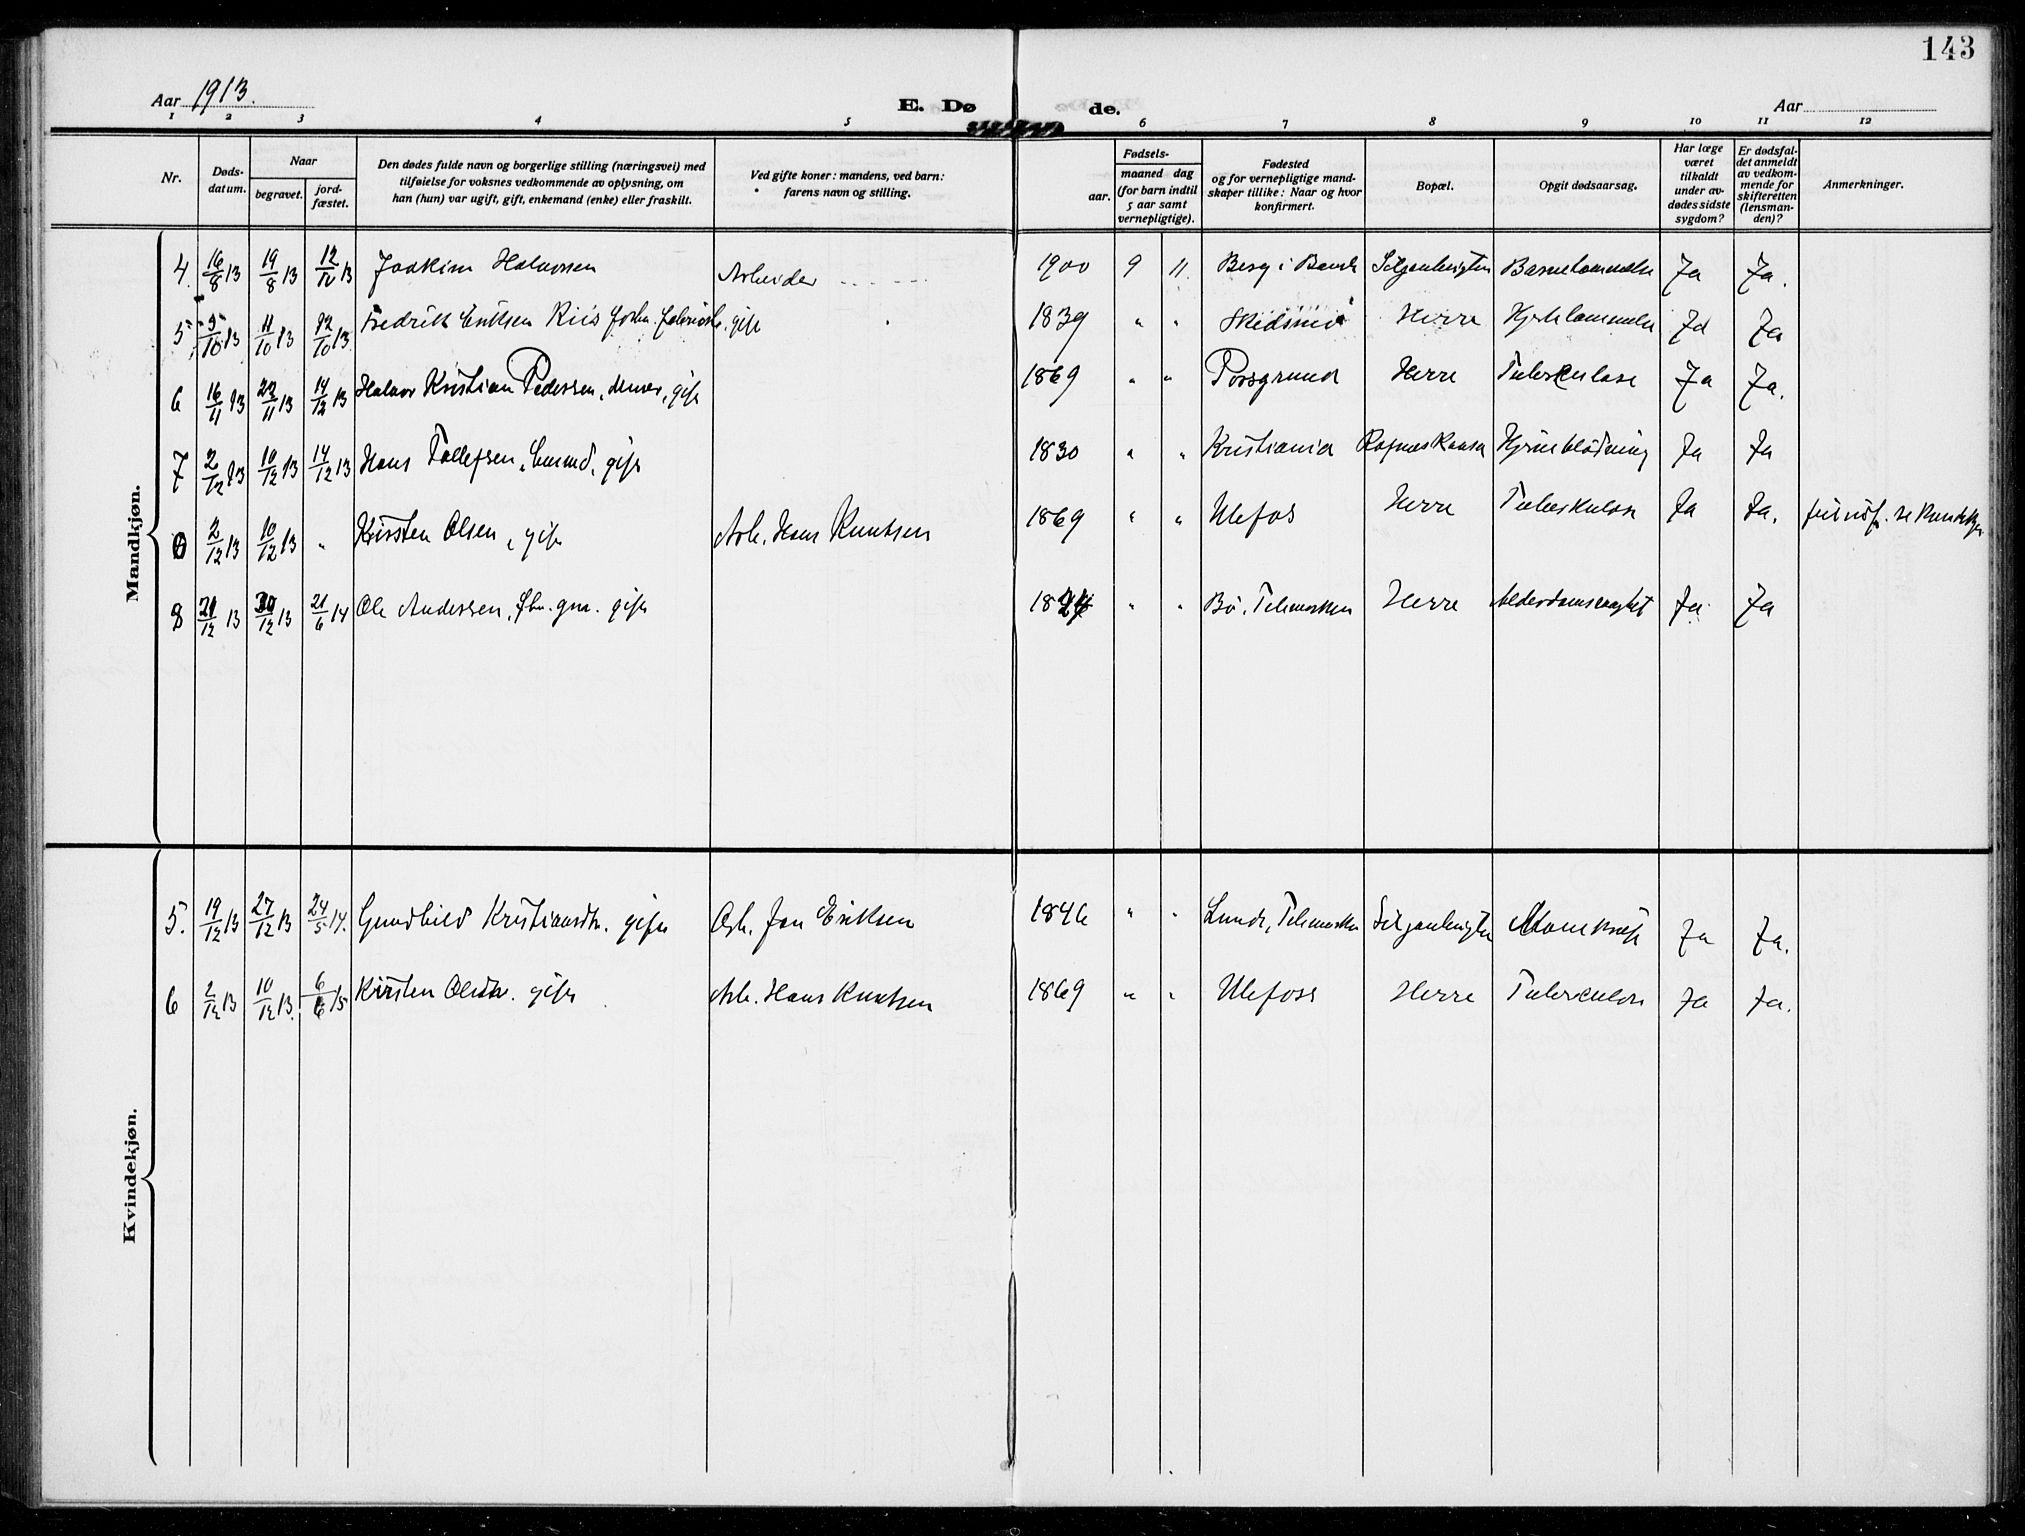 143
Aar 1913.
E. Dø de.
Aar
1 2 3 4 5 6 7 8 9 10 11 12
Nr.
Døds-
datum.
Naar
begravet.
jord-
fæstet.
Den dødes fulde navn og borgerlige stilling (næringsvei) med
tilføielse for voksnes vedkommende av oplysning, om
han (hun) var ugift, gift, enkemand (enke) eller fraskilt.
Ved gifte koner: mandens, ved barn:
farens navn og stilling.
aar.
Fødsels-
maaned dag
(for barn indtil
5 aar samt
vernepligtige).
Fødested
og for vernepligtige mand-
skaper tillike: Naar og hvor
konfirmert.
Bopæl.
Opgit dødsaarsag.
Har læge
været
tilkaldt
under av-
dødes sidste
sygdom?
Er dødsfal-
det anmeldt
av vedkom-
mende for
skifteretten
(lensman-
den)?
Anmerkninger.
Mandkjøn.
4. 16/8 13 19/8 13 12/10 13 Joakim Halvorsen Arbeider 1900 9 11 Berg i Ja Ja.
5 5/10 13 11/10 13 12/10 13 Fredrik Eriksen Riis gift 1839 " " Herre Hjertelammelse Ja Ja
6 16/11 13 23/11 13 14/12 13 Halvor Kristian Pedersen, gift 1869 " " Porsgrund Herre Tuberculose Ja Ja.
7 2/12 13 10/12 13 14/12 13 Hans Tollefsen, gift 1830 " " Kristiania Hjerneblødning Ja Ja
2/12 13 10/12 13 " Kirsten Olsen, gift Arb. Hans Knutsen 1869 " " Ulefos Herre Tuberkulose Ja Ja.
8 12 13 12 13 21/6 14 Ole Andersen, gift " " Bø, Telemarken Herre Alderdomssvaghet Ja Ja
Kvindekjøn.
5. 19/12 13 27/12 13 24/5 14. Gundhild Kristiansdtr. gift Arb. Jan Eriksen 1846 " " Lunde, Telemarken Ja Ja.
6 2/12 13 10/12 13. 6/6 15 Kirsten Olsdtr. gift Arb. Hans Knutsen 1869 " " Ulefoss Herre Tuberculose Ja Ja.